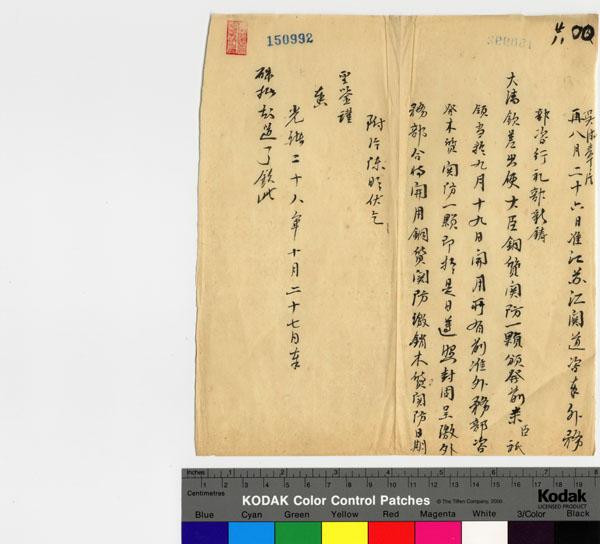 150992
再八月二十六日准江苏江関道咨奉外務
部咨行礼部新鋳
大清欽差出使大臣銅質関防一顆頒發前来臣祇
領当於九月十九日開用所有前准外務部咨
發木質関防一顆即於是日遵照封固呈激外
務部合将開用銅質関防繳銷木質関防日期
附片陳明伏乞
聖鑒謹
奏
光緒二十八年十月二十七日奉
硃批知道了欽此
Inches
Centimetres
KODAK Color Control Patches
© The Tiffen Company, 2000
Kodak
LICENSED PRODUCT
Blue Cyan Green Yellow Red Magenta White 3/Color Black